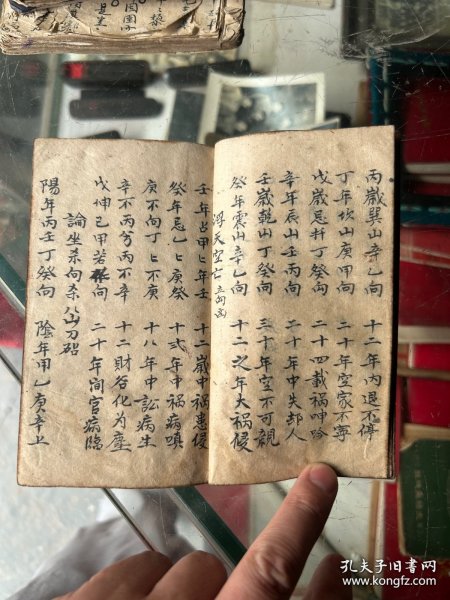 丙歲巽山辛乙向 十二年內退不停
丁年坎山庚甲向 二十年空家不寧
戊歲艮 丁癸向 二十四載禍呻吟
辛年辰山壬丙向 二十年中失却人
壬歲乾山丁癸向 三十年空不可親
癸年震山辛乙向 十二之年大禍侵
浮天空亡
壬年占甲乙年壬 十二歲中禍患侵
癸年忌乙乙庚癸 十式年中禍病嗔
庚不向丁乙不庚 十八年中訟病生
辛不丙兮丙不辛 十二財谷化為塵
戊坤己甲若 向 二十年间官病臨
論坐杀向杀八山刀砧
陽年丙壬丁癸向 陰年甲乙庚辛上
孔夫子旧书网
www.kongfz.com